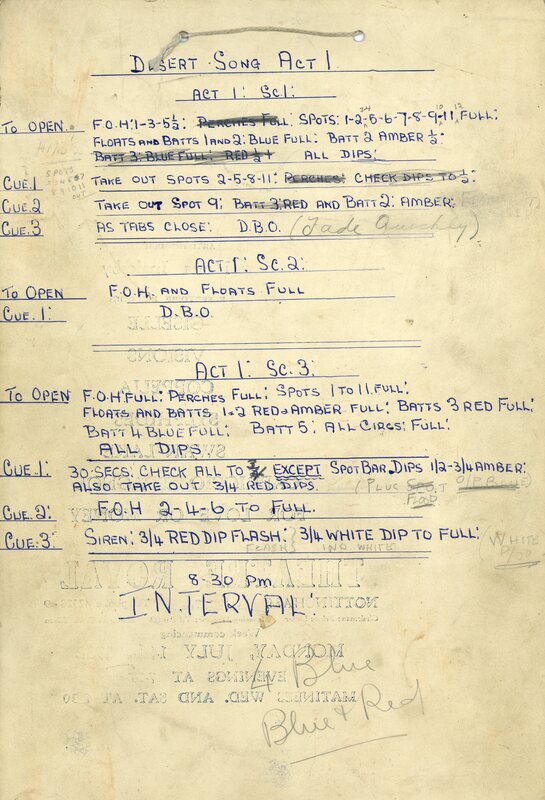 DESERT SONG ACT 1
ACT 1: SC.1:
TO OPEN. F.O.H: 1-3-5½: PERCHES FULL: SPOTS: 1-2-3/4-5-6-7-8-9-10-11-12 FULL:
FLOATS AND BATTS 1 AND 2: BLUE FULL: BATT 2 AMBER ½:
BATT 3: BLUE FULL: RED ½+ ALL DIPS:
CUE.1 TAKE OUT SPOTS 2-5-8-11: PERCHES: CHECK DIPS TO ½:
CUE.2 TAKE OUT SPOT 9: BATT 3: RED AND BATT 2: AMBER:
CUE.3 AS TABS CLOSE: D.B.O. (Fade Quickly)
ACT 1: SC. 2:
TO OPEN F.O.H. AND FLOATS FULL
CUE. 1: D.B.O.
ACT 1: SC. 3:
TO OPEN F.O.H FULL: PERCHES FULL: SPOTS 1 TO 11. FULL:
FLOATS AND BATTS 1+2 RED+AMBER FULL: BATTS 3 RED FULL:
BATT 4 BLUE FULL: BATT 5: ALL CIRCS: FULL:
ALL DIPS
CUE 1: 30 SECS: CHECK ALL TO ¾ EXCEPT SPOT BAR. DIPS 1/2-3/4 AMBER:
ALSO TAKE OUT 3/4 RED DIPS. (PLUS SPOT O/P BLUE)
FLOOD
CUE 2: F.O.H 2-4-6 TO FULL.
CUE 3: SIREN: 3/4 RED DIP FLASH: 3/4 WHITE DIP TO FULL:
8-30 PM
INTERVAL:
4 Blue
Blue + Red
GISELLE
VISIONS
COPPELIA
SWAN LAKE
FOR LOVE OR MONEY
THEATRE ROYAL
NOTTINGHAM
Week commencing
MONDAY, JULY
EVENINGS AT
MATINEES WED. AND SAT. AT 2.30